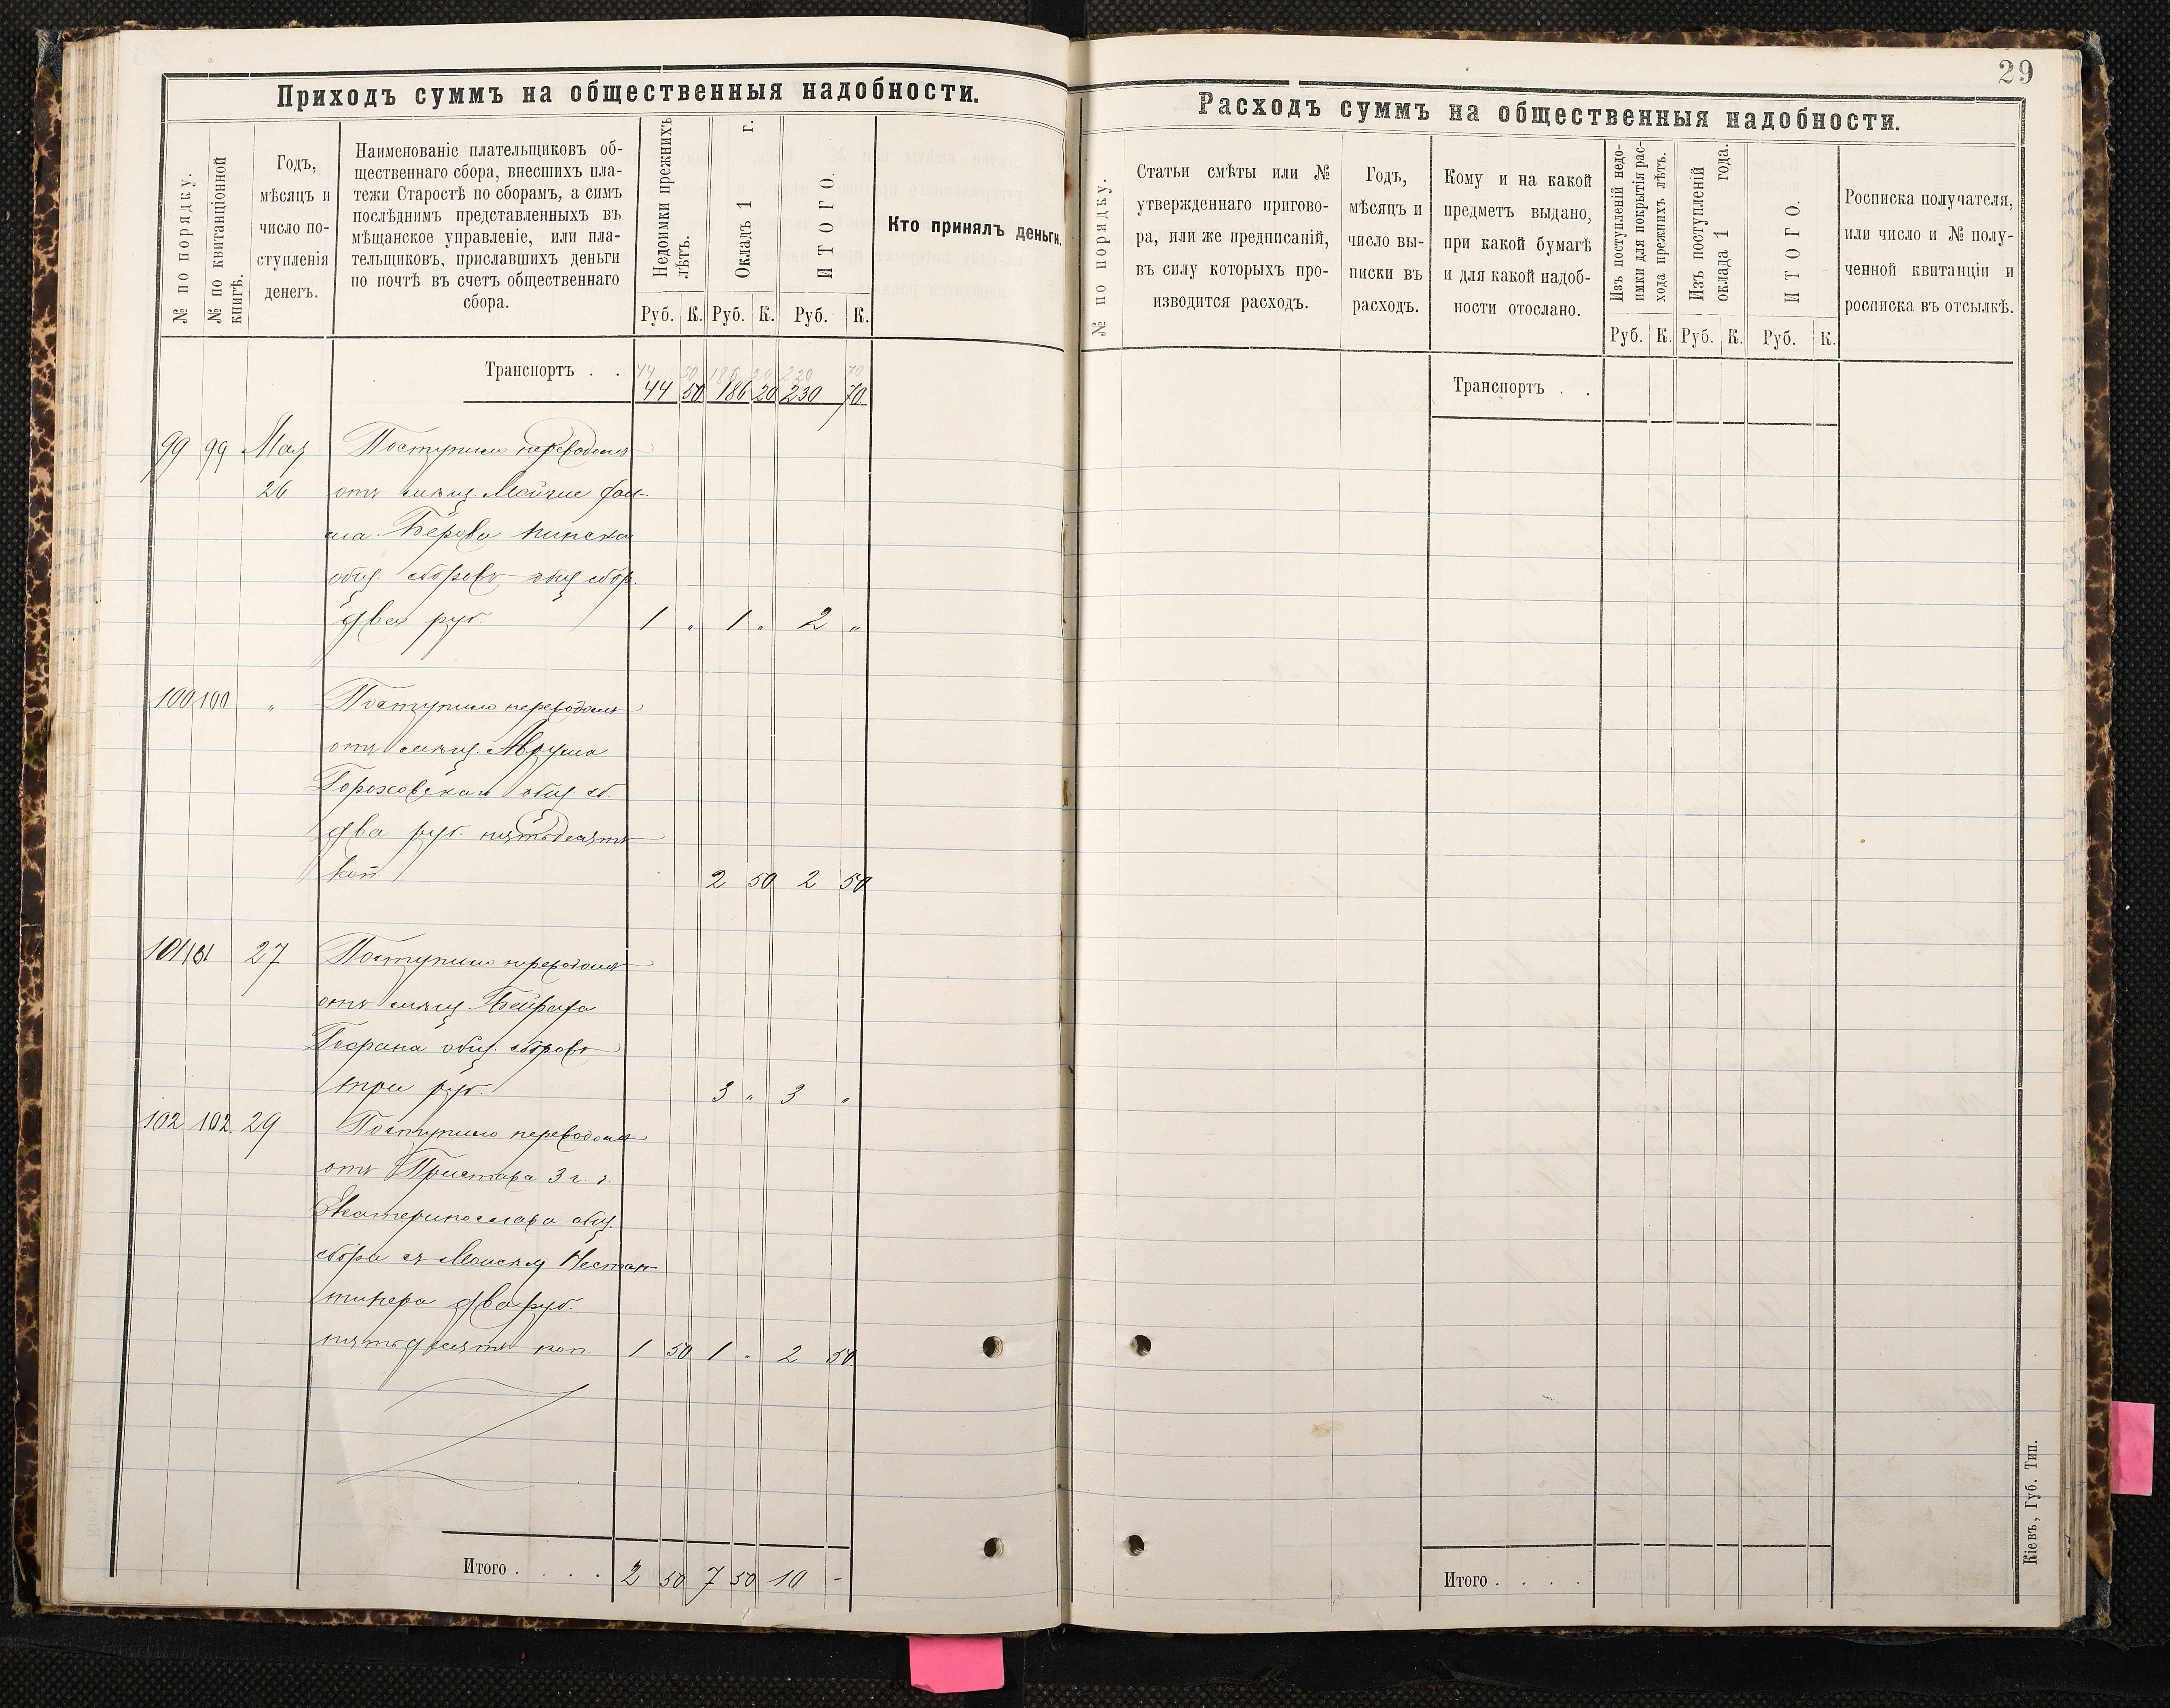 Приходъ суммъ на общественныя надобности.
№ по порядку.
№ по квитанціонной
книгѣ.
Годъ,
мѣсяцъ и
число по-
ступленія
денегъ.
Наименованіе плательщиковъ об-
щественнаго сбора, внесшихъ пла-
тежи Старостѣ по сборамъ, а симъ
послѣднимъ представленныхъ въ
мѣщанское управленіе, или пла-
тельщиковъ, приславшихъ деньги
по почтѣ въ счетъ общественнаго
сбора.
Недоимки прежнихъ
лѣтъ.
Окладъ 1 г.
ИТОГО.
Кто принялъ деньги.
Руб. К. Руб. К. Руб. К.
44 50 186 20 230 70
Транспортъ . . 44 50 186 20 230 70
99 99 Мая Поступило переводомъ
26 отъ мѣщ.
Пинска
общ. сборовъ общ сбор.
два руб. 1 „ 1 „ 2 „
100 100 „ Поступило переводомъ
отъ мѣщ. Аврума
общ. сб.
два руб. пятьдесятъ
коп. 2 50 2 50
101 101 27 Поступило переводомъ
отъ мѣщ.
общ. сборовъ
три руб. 3 „ 3 „
102 102 29 Поступило переводомъ
отъ Пристава 3 ч. г.
Екатеринослава общ.
сбора съ
два руб.
пятьдесятъ коп. 1 50 1 „ 2 50
Итого . . . . 2 50 7 50 10 -
29
Расходъ суммъ на общественныя надобности.
№ по порядку.
Статьи смѣты или №
утвержденнаго пригово-
ра, или же предписаній,
въ силу которыхъ про-
изводится расходъ.
Годъ,
мѣсяцъ и
число вы-
писки въ
расходъ.
Кому и на какой
предметъ выдано,
при какой бумагѣ
и для какой надоб-
ности отослано.
Изъ поступленій недо-
имки для покрытія рас-
хода прежнихъ лѣтъ.
Изъ поступленій
оклада 1 года.
ИТОГО.
Росписка получателя,
или число и № полу-
ченной квитанціи и
росписка въ отсылкѣ.
Руб. К. Руб. К. Руб. К.
Транспортъ . .
Итого . . . .
Кіевъ, Губ. Тип.